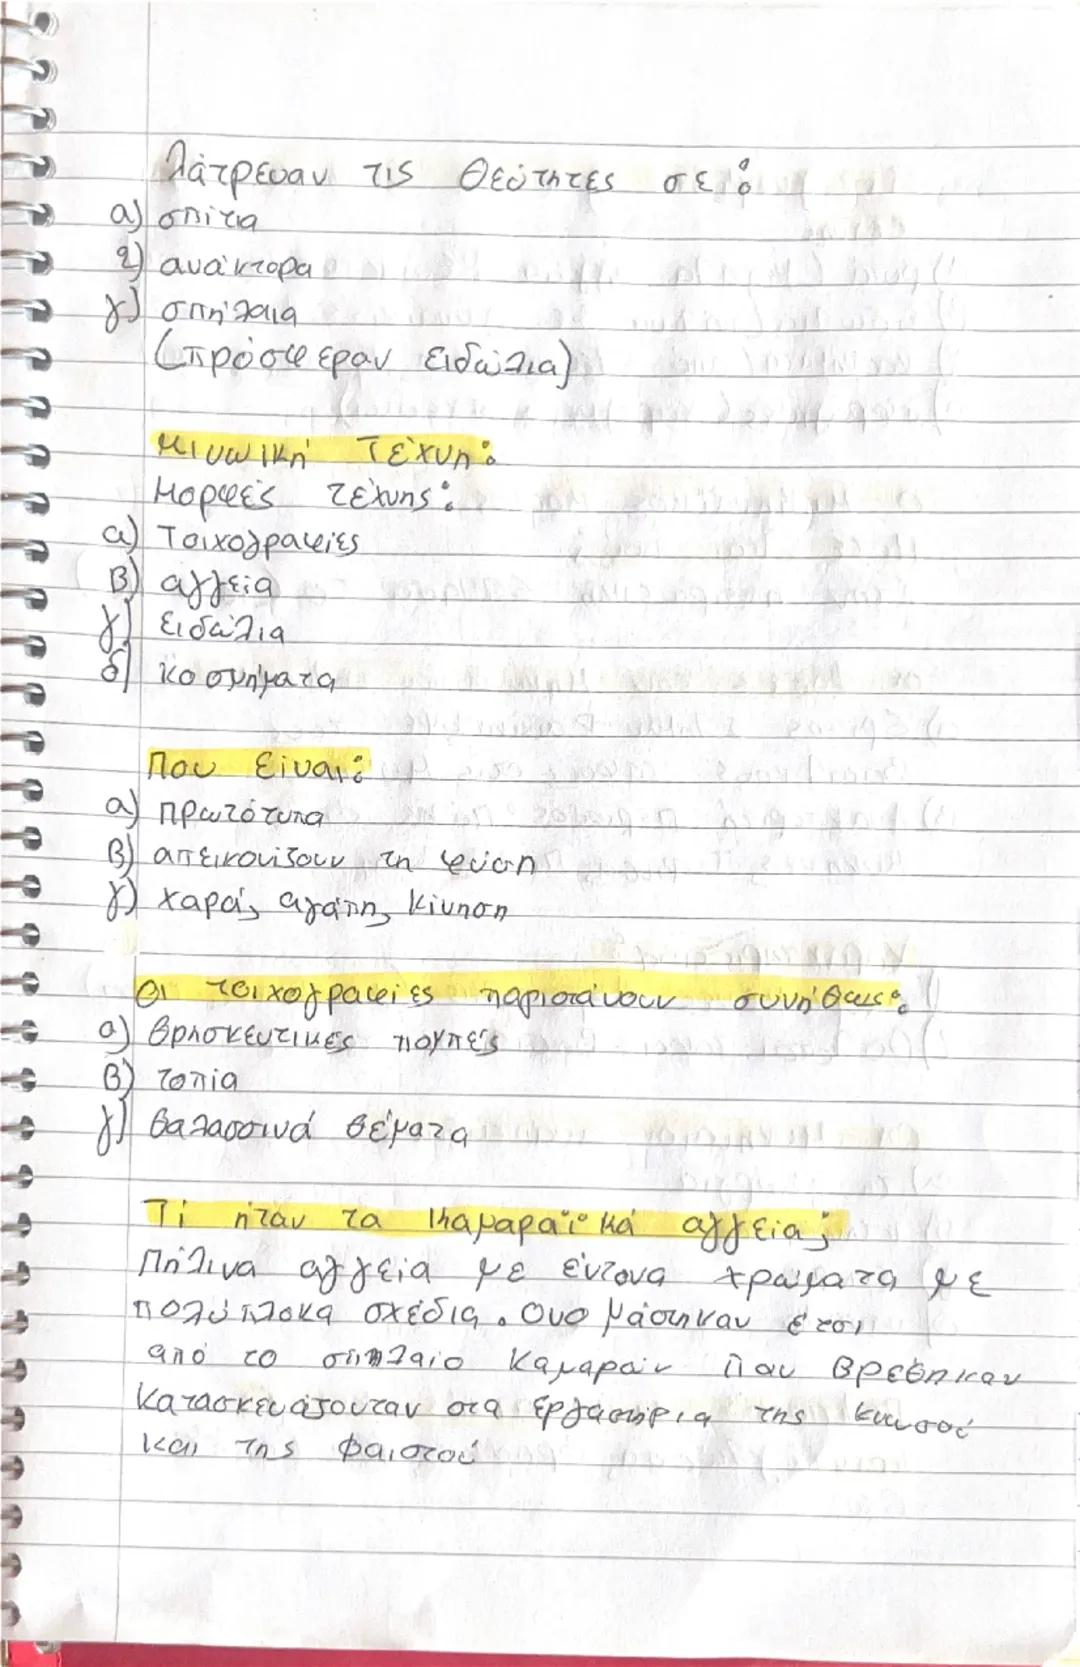 Λάτρευαν τις Θεότητες σε:
α) σπίτια
β) ανάκτορα
γ) σπήλαια
(πρόσφεραν ειδώλια)
Μινωική Τέχνη:
Μορφές τέχνης:
α) Τοιχογραφίες
Β) αγγεία
γ) ειδώλια
δ) κοσμήματα
Που είναι:
α) πρωτότυπα
Β) απεικονίζουν τη φύση
γ) χαρά, αγάπη, κίνηση
Οι τοιχογραφίες παριστάνουν συνήθως:
α) θρησκευτικές πομπές
Β) τοπία
γ) θαλασσινά θέματα
Τί ήταν τα Καμαραϊκά αγγεία;
Πήλινα αγγεία με έντονα χρώματα με
πολύπλοκα σχέδια. Ονομάστηκαν έτσι
από το σπήλαιο Καμαρών που Βρέθηκαν
Κατασκευάζονταν στα εργαστήρια της Κνωσού
και της Φαιστού